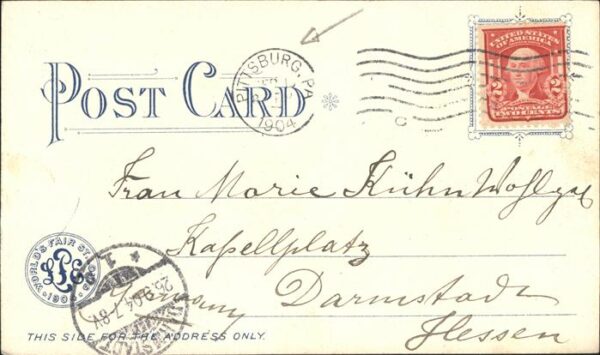 POST CARD
PITTSBURG, PA
1904
UNITED STATES
OF AMERICA
2 POSTAGE 2
TWO CENTS
Frau Marie Kühn
Kapellplatz
Germany Darmstadt
Hessen
WORLD'S FAIR ST. LOUIS
1904
DARMSTADT
1
THIS SIDE FOR THE ADDRESS ONLY.